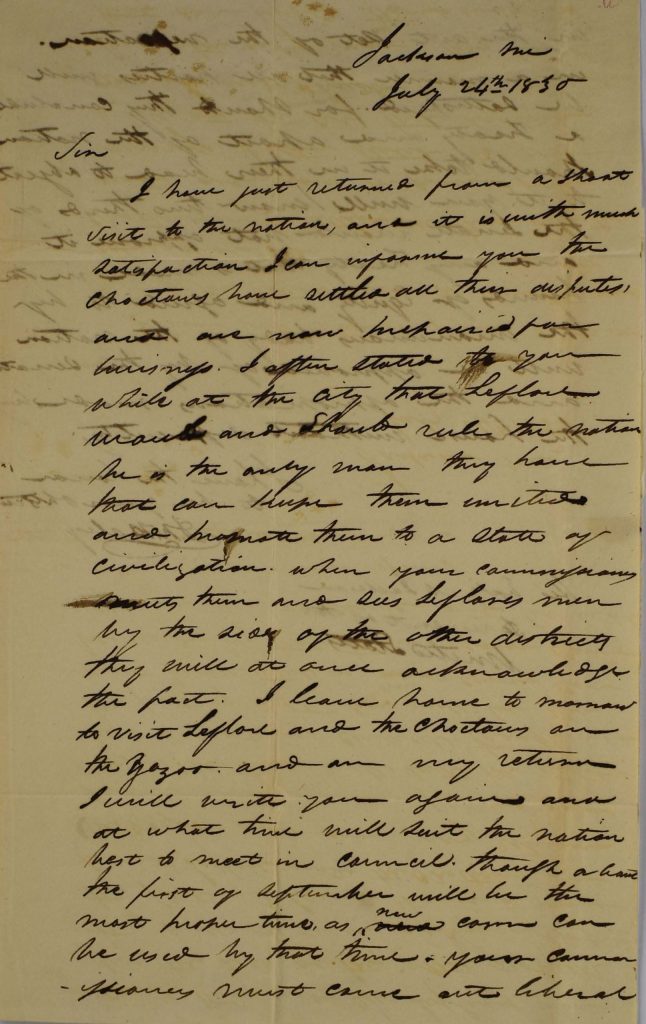 Jackson Mi
July 24th 1830
Sir
I have just returned from a short
visit to the nation, and it is with much
satisfaction I can informe you the
Choctaws have settled all their disputes,
and are now prepaired for
buisness. I often stated to you
while at the City that Leflore
would and should rule the nation
he is the only man they have
that can keepe them united
and promote them to a state of
civilization. when your commissioners
meets them and sees Leflores men
by the side of the other districts
they will at once acknowledge
the fact. I leave home to morrow
to visit Leflore and the Choctaws on
the Yazoo. and on my return
I will write you again and
at what time will suit the nation
best to meet in council. though about
the first of September will be the
most proper time. as new corn can
be used by that time. your commi
-ssioners must come out liberal